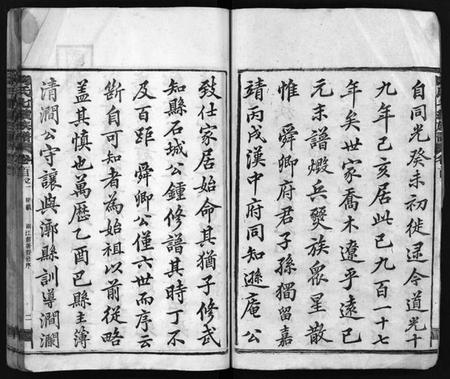 自同光癸未初徙逮今道光十
九年己亥居此已九百一十七
年矣世家喬木遼乎遠已
元末譜燬兵燹族眾星散
惟舜卿府君子孫獨留嘉
靖丙戌漢中府同知遜庵公
致仕家居始命其猶子修武
知縣石城公鍾修譜其時丁不
及百距舜卿公僅六世而序云
斷自可知者為始祖以前從略
蓋其慎也萬歷乙酉巴縣主簿
清澗公守讓與漷縣訓導澗瀾
卷首之
二